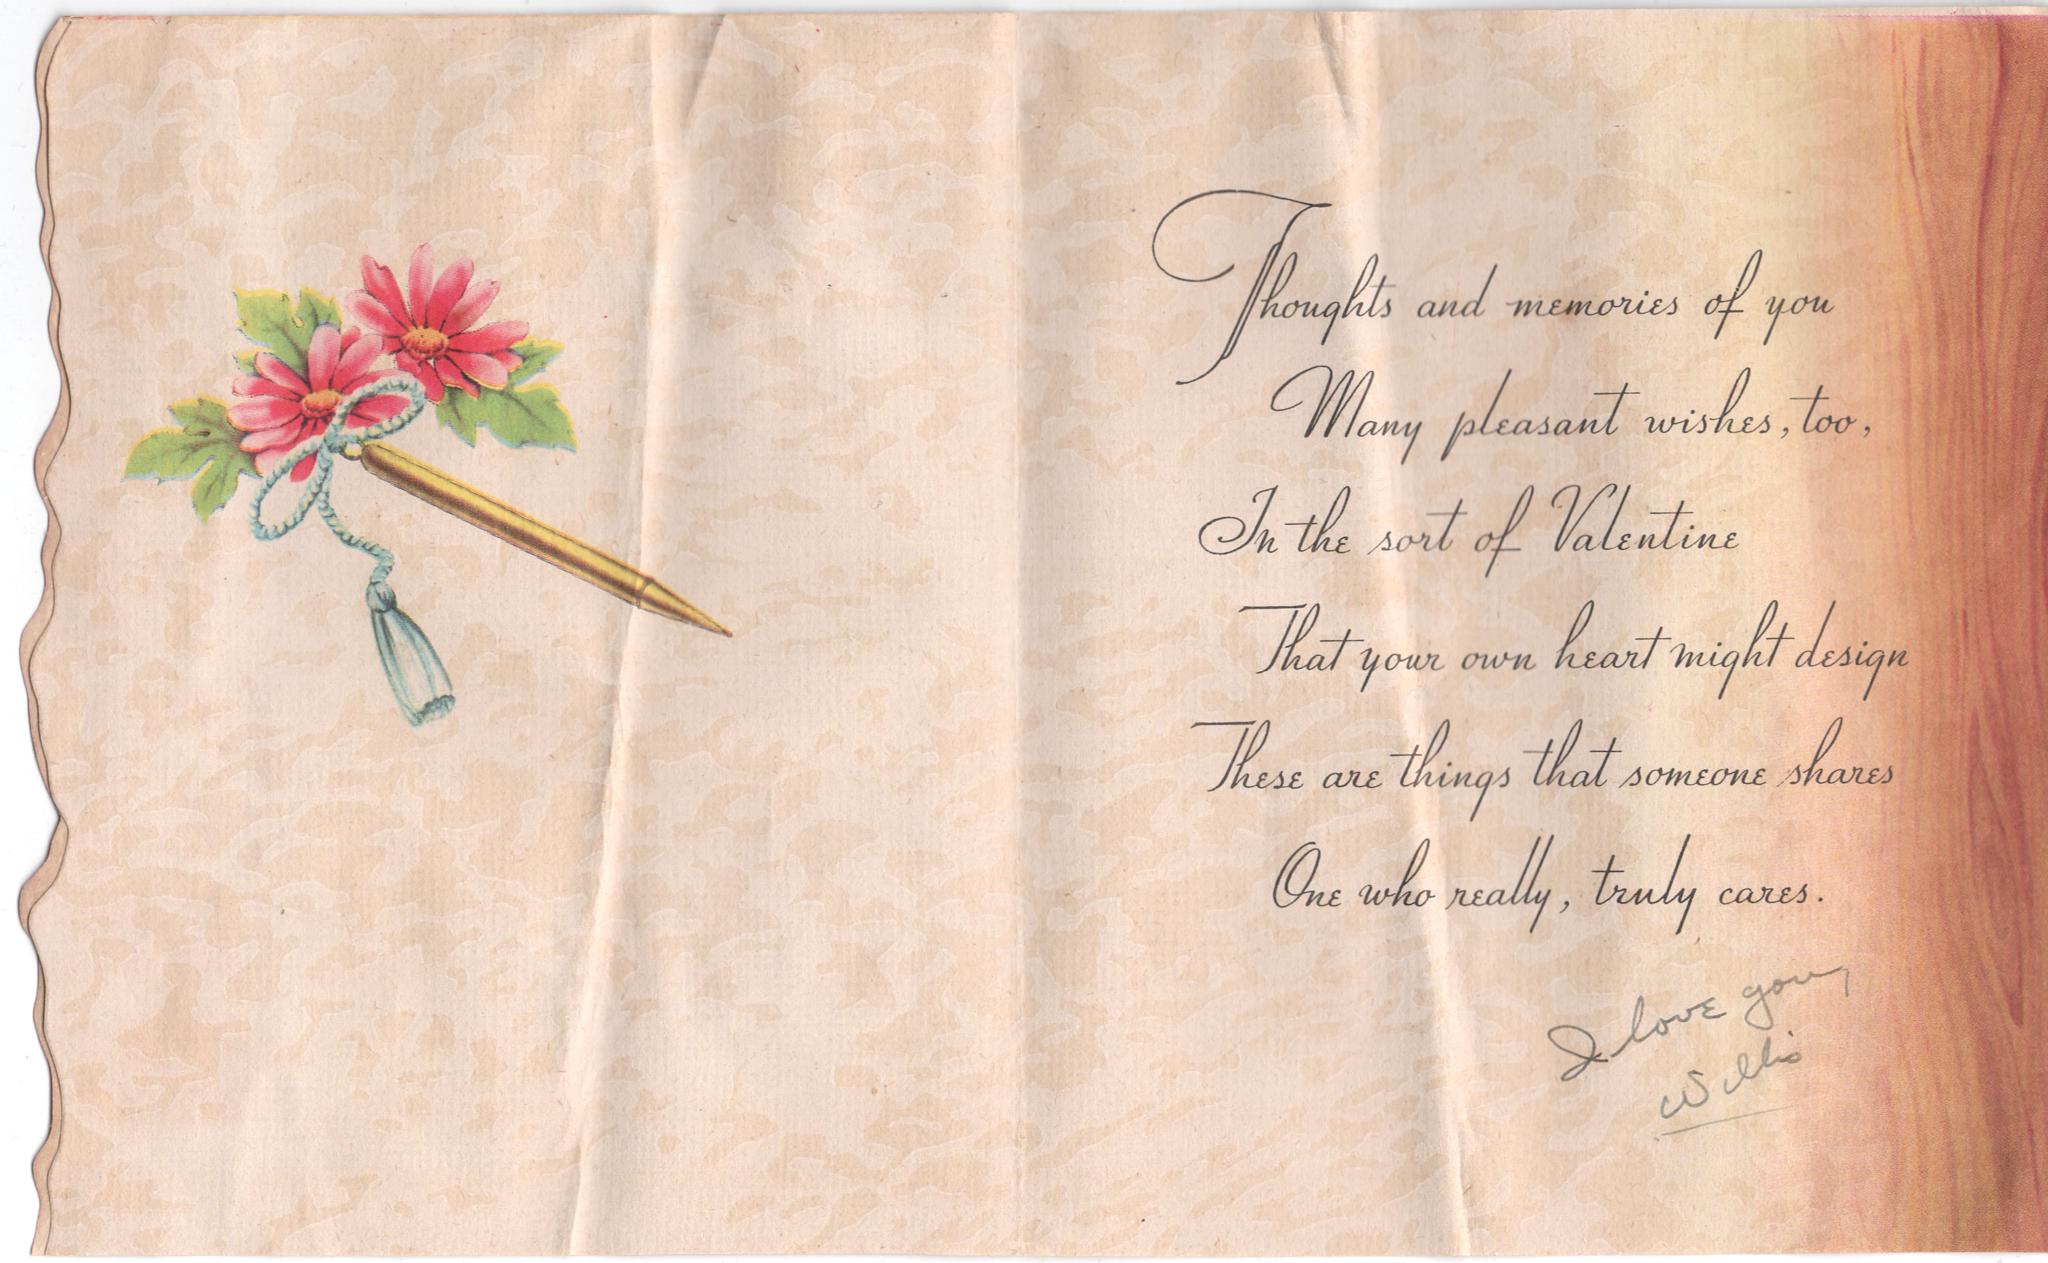 Thoughts and memories of you
Many pleasant wishes, too,
In the sort of Valentine
That your own heart might design
These are things that someone shares
One who really, truly cares.
I love you,
Willis